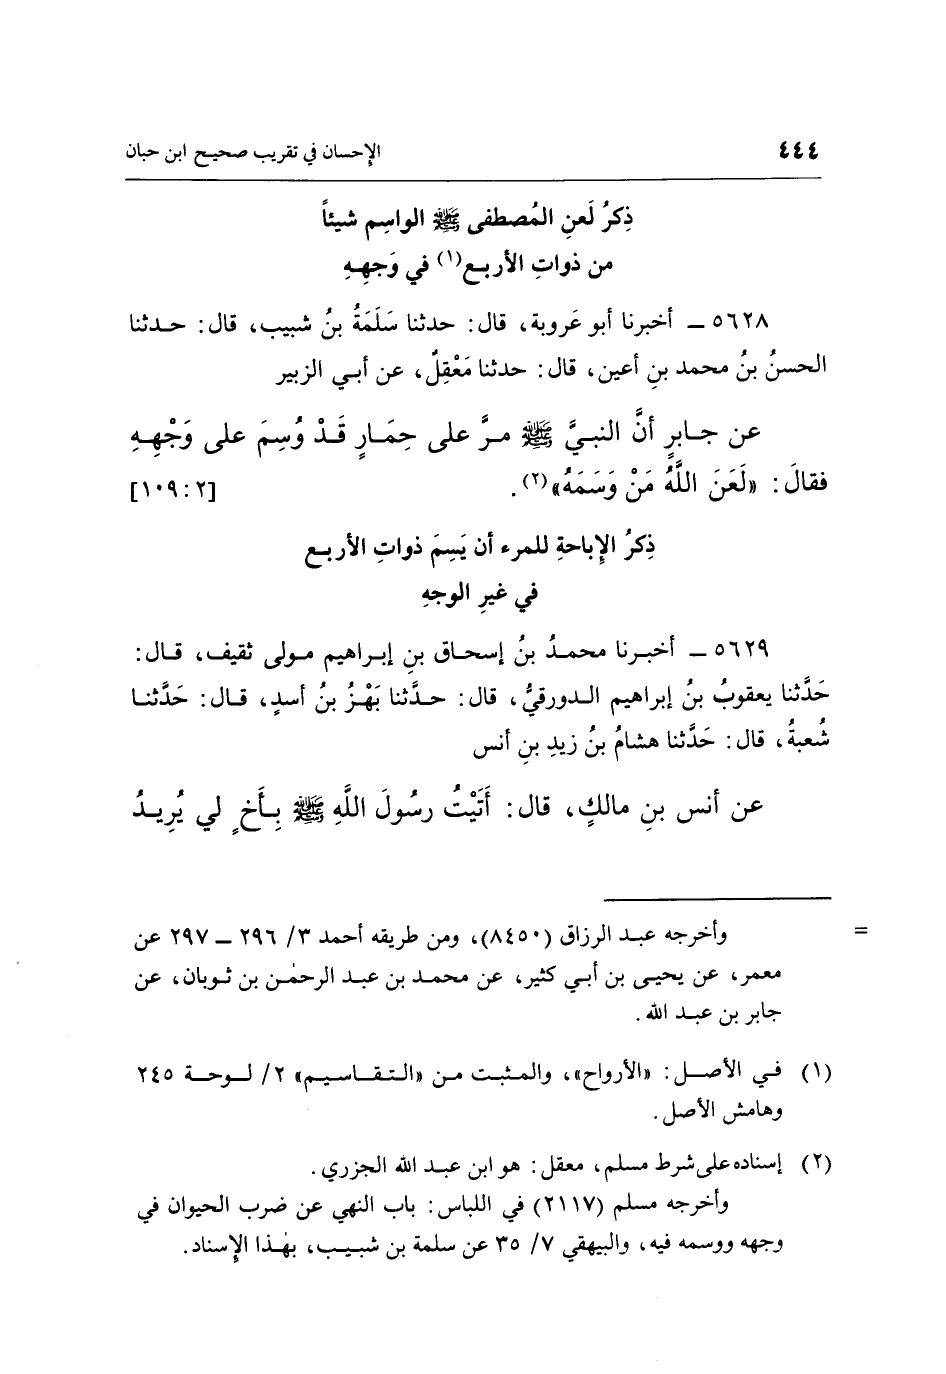 ٤٤٤ الإحسان في تقريب صحيح ابن حبان
ذِكرُ لَعنِ المُصطفى ﷺ الواسِم شيئاً
من ذواتِ الأربع(١) في وَجهِهِ
٥٦٢٨ ــ أخبرنا أبو عَروبة، قال: حدثنا سَلَمَةُ بنُ شبيب، قال: حدثنا
الحسنُ بنُ محمد بنِ أعين، قال: حدثنا مَعْقِلٌ، عن أبي الزبير
عن جابرٍ أنَّ النبيَّ ﷺ مرَّ على حِمَارٍ قَدْ وُسِمَ على وَجْهِهِ
فقالَ: «لَعَنَ اللَّهُ مَنْ وَسَمَهُ»(٢). [٢:١٠٩]
ذِكرُ الإباحةِ للمرء أن يَسِمَ ذواتِ الأربع
في غيرِ الوجهِ
٥٦٢٩ ــ أخبرنا محمدُ بنُ إسحاق بنِ إبراهيم مولى ثقيف، قال:
حَدَّثنا يعقوبُ بنُ إبراهيم الدورقيُّ، قال: حدَّثنا بَهْزُ بنُ أسدٍ، قال: حَدَّثنا
شُعبةُ، قال: حَدَّثنا هشامُ بنُ زيدِ بنِ أنس
عن أنس بنِ مالكٍ، قال: أَتَيْتُ رسُولَ اللَّهِ ﷺ بِأَخٍ لي يُرِيدُ
= وأخرجه عبد الرزاق (٨٤٥٠)، ومن طريقه أحمد ٣/ ٢٩٦ ــ ٢٩٧ عن
معمر، عن يحيى بن أبي كثير، عن محمد بن عبد الرحمٰن بن ثوبان، عن
جابر بن عبد الله.
(١) في الأصل: «الأرواح»، والمثبت من «التقاسيم» ٢/ لوحة ٢٤٥
وهامش الأصل.
(٢) إسناده على شرط مسلم، معقل: هو ابن عبد الله الجزري.
وأخرجه مسلم (٢١١٧) في اللباس: باب النهي عن ضرب الحيوان في
وجهه ووسمه فيه، والبيهقي ٧/ ٣٥ عن سلمة بن شبيب، بهٰذا الإسناد.